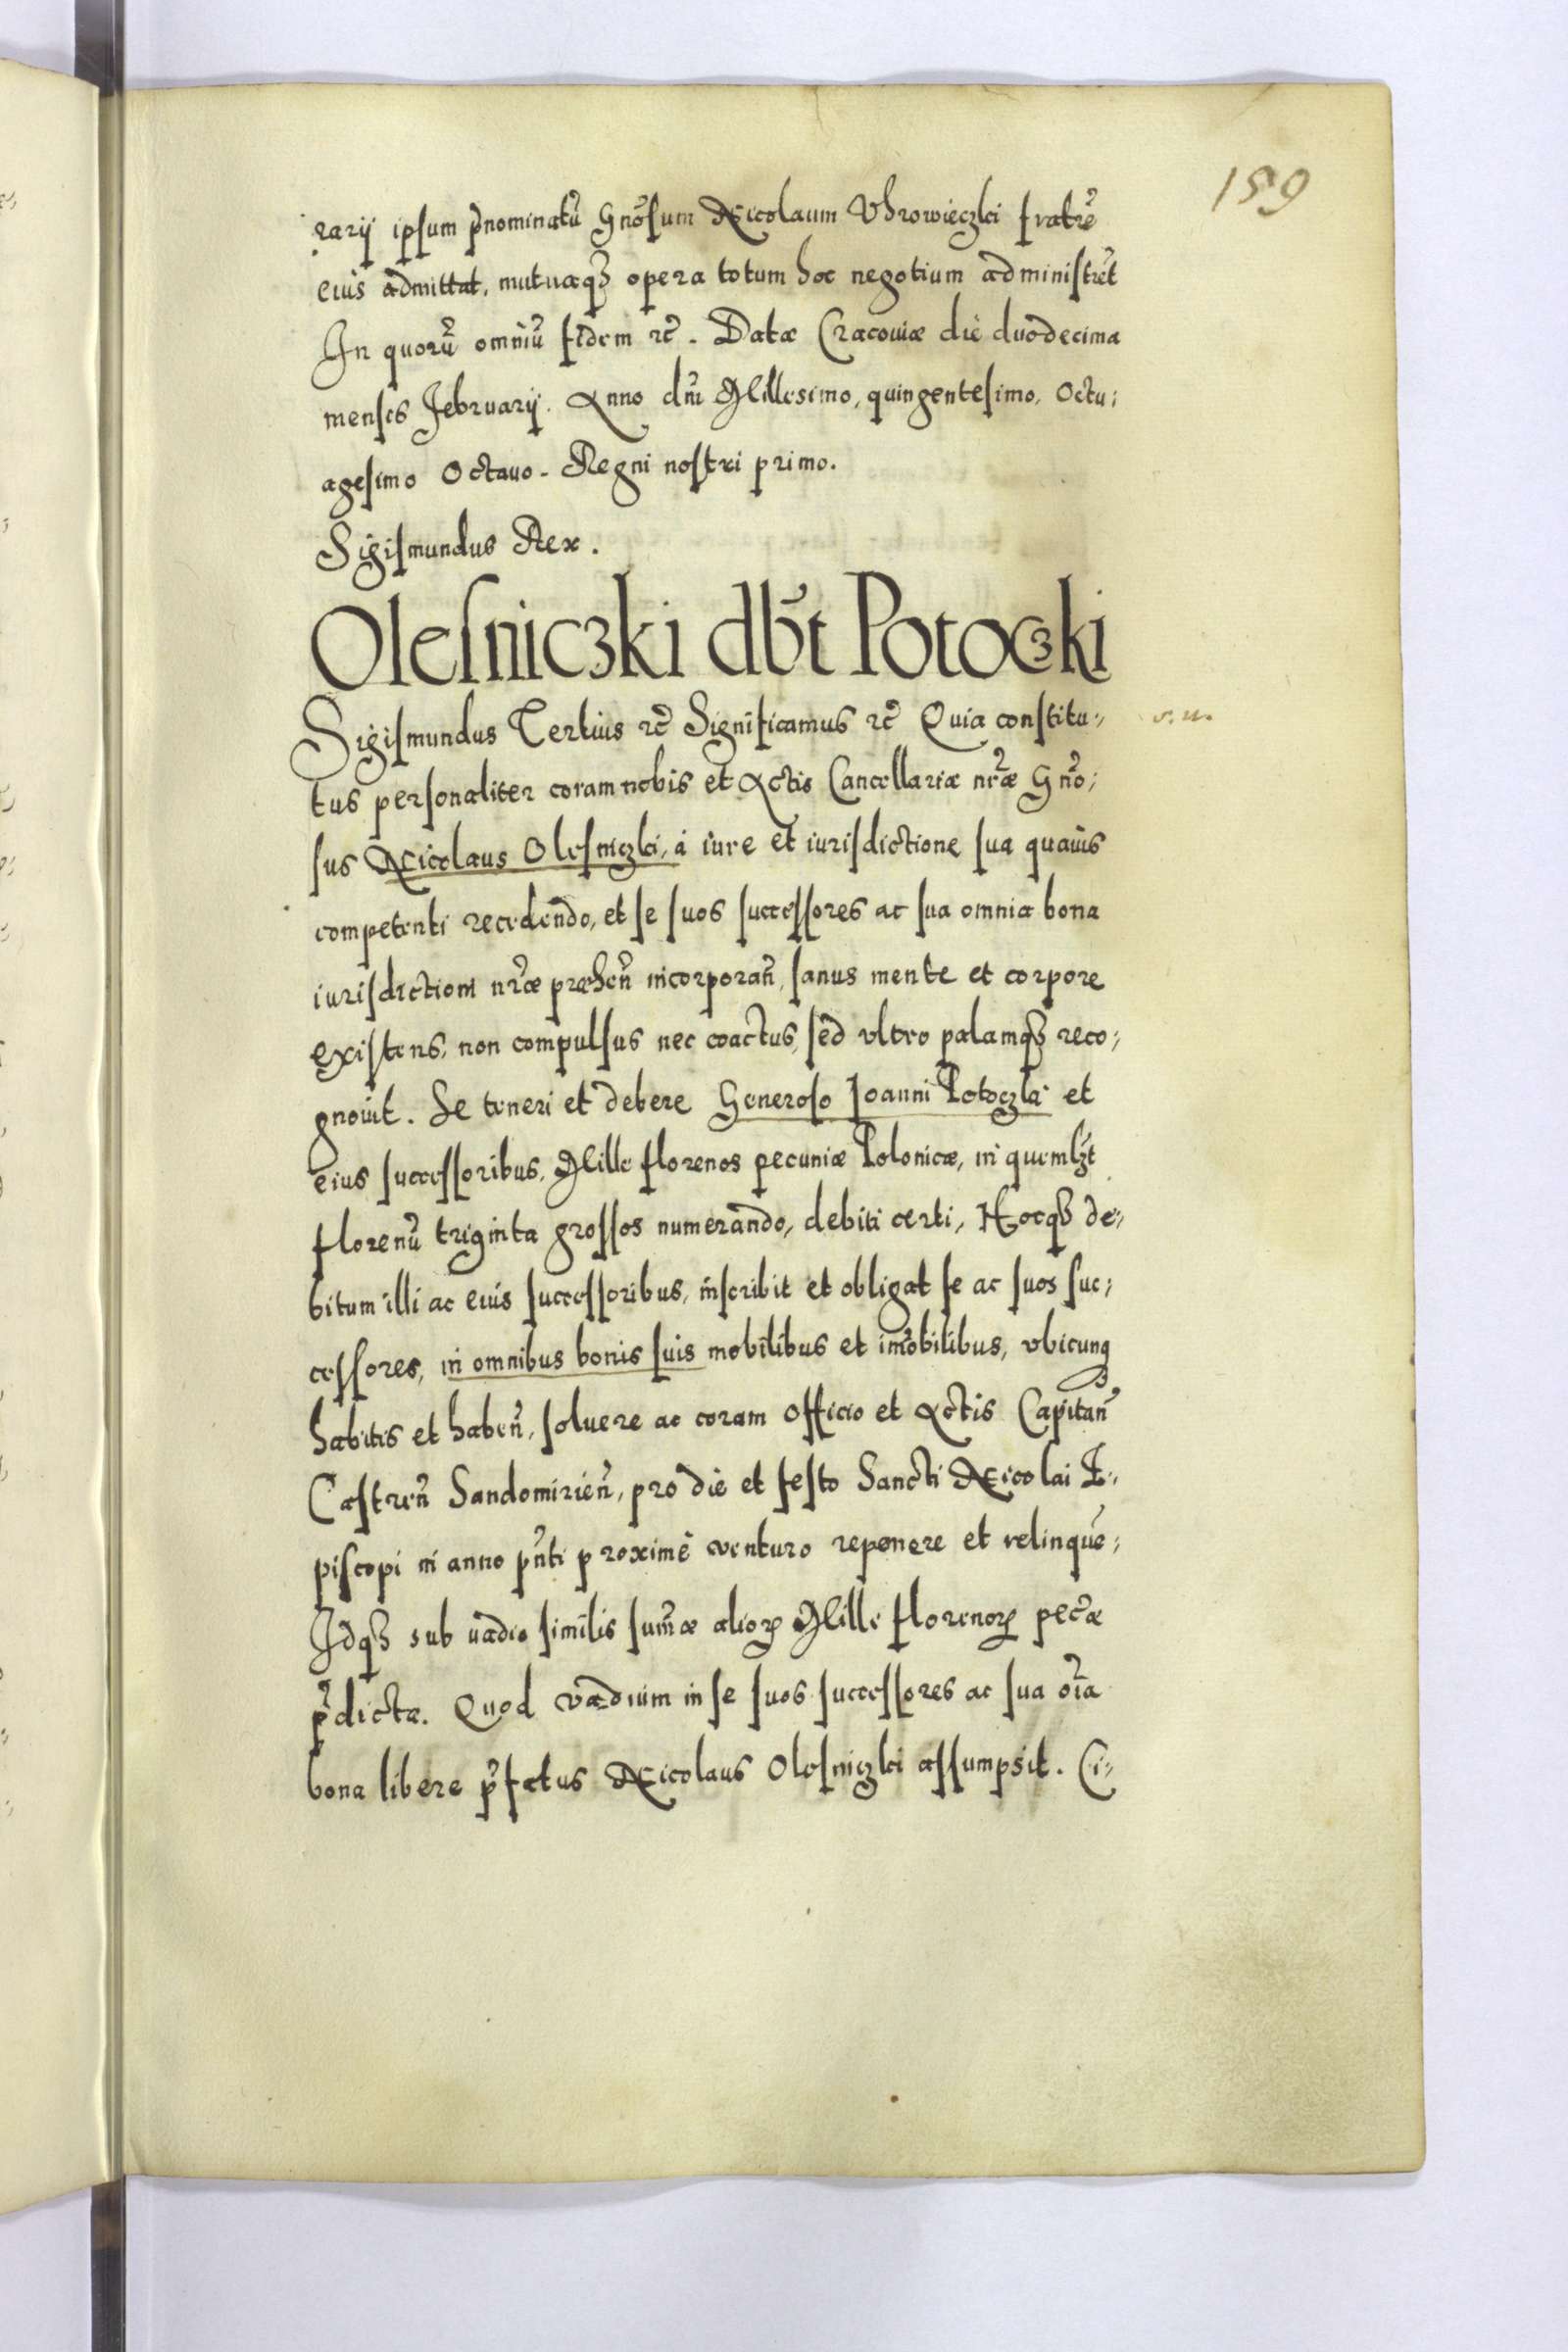 159
rarij ipsum p̃nominatũ Gnõsum Nicolaum Vhrowieczki fratrẽ
eius admittat, mutuaqꝫ opera totum hoc negotium administrẽt
In quorũ omniũ fidem ꝛc̃. Datæ Cracouiæ die duodecima
mensis Februarij. Anno dñi Millesimo, quingentesimo, Octu:
agesimo Octauo. Regni nostri primo.
Sigismundus Rex.
Olesniczki db̃t Potoczki
Sigismundus Tertius ꝛc̃ Significamus ꝛc̃ Quia constitu:
tus personaliter coram nobis et Actis Cancellariæ nr̃æ Gnõ:
sus Nicolaus Olesniczki, à iure et iurisdictione sua quauis
competenti recedendo, et se suos successores ac sua omnia bona
iurisdictioni nr̃æ præsẽn incorporañ, sanus mente et corpore
existens, non compulsus nec coactus, sed vltro palamqꝫ reco:
gnouit. Se teneri et debere Generoso Ioanni Potoczki et
eius successoribus, Mille florenos pecuniæ Polonicæ, in quemlꝫt
florenũ triginta grossos numerando, debiti certi, Hocqꝫ de:
bitum illi ac eius successoribus, inscribit et obligat se ac suos suc:
cessores, in omnibus bonis suis mobilibus et im̃obilibus, vbicunqꝫ
habitis et habeñ, soluere ac coram Officio et Actis Capitañ
Castreñ Sandomirieñ, pro die et festo Sancti Nicolai E:
piscopi in anno pñti proximè venturo reponere et relinquẽ:
Idqꝫ sub vadio similis sum̃æ alioꝝ Mille florenoꝝ pec̃æ
p̃dictæ. Quod vadium in se suos successores ac sua oĩa
bona libere p̃fatus Nicolaus Olesniczki assumpsit. Ci: